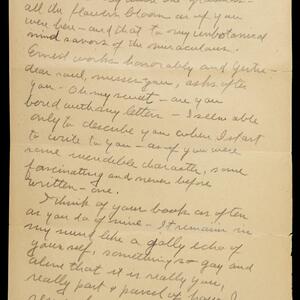 all the flowers bloom as if you
were here - and that to my unbotanical
mind savors of the miraculous.
Ernest works honorably and Gertie -
dear soul, misses you, asks after
you. Oh my sweet - are you
bored with my letters - I seem able
only to describe you when I start
to write to you - as if you were
some incredible character, some
fascinating and never before
written - one.
I think of your book as often
as you do of mine - It remains in
my mind like a jolly echo of
yourself, something so gay and
alive that it is really you,
really part & parcel of